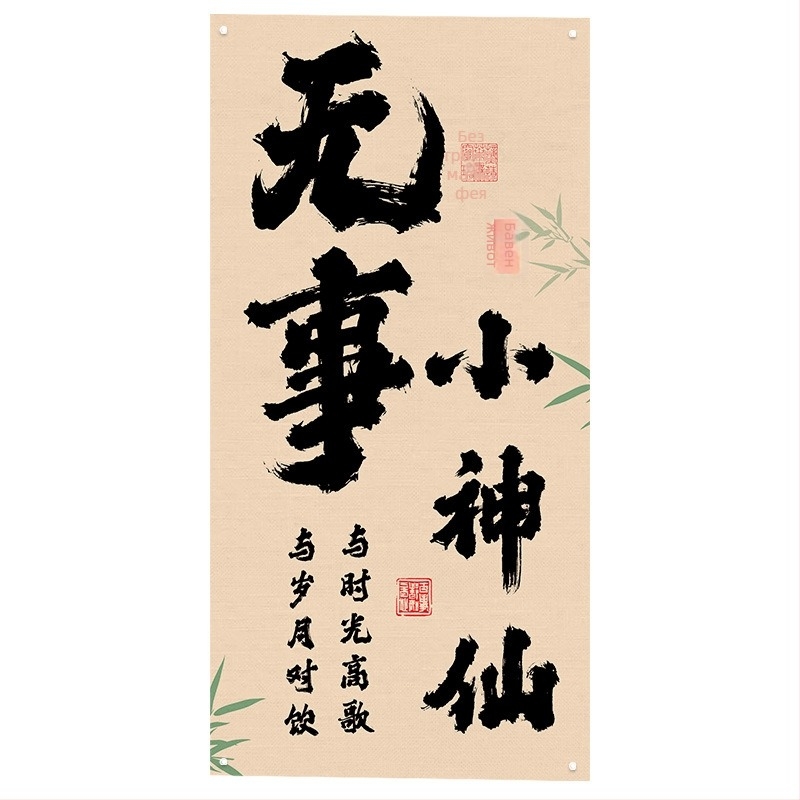 无事
小神仙
与时光高歌
与岁月对饮
Без
фея
Бавен
живот